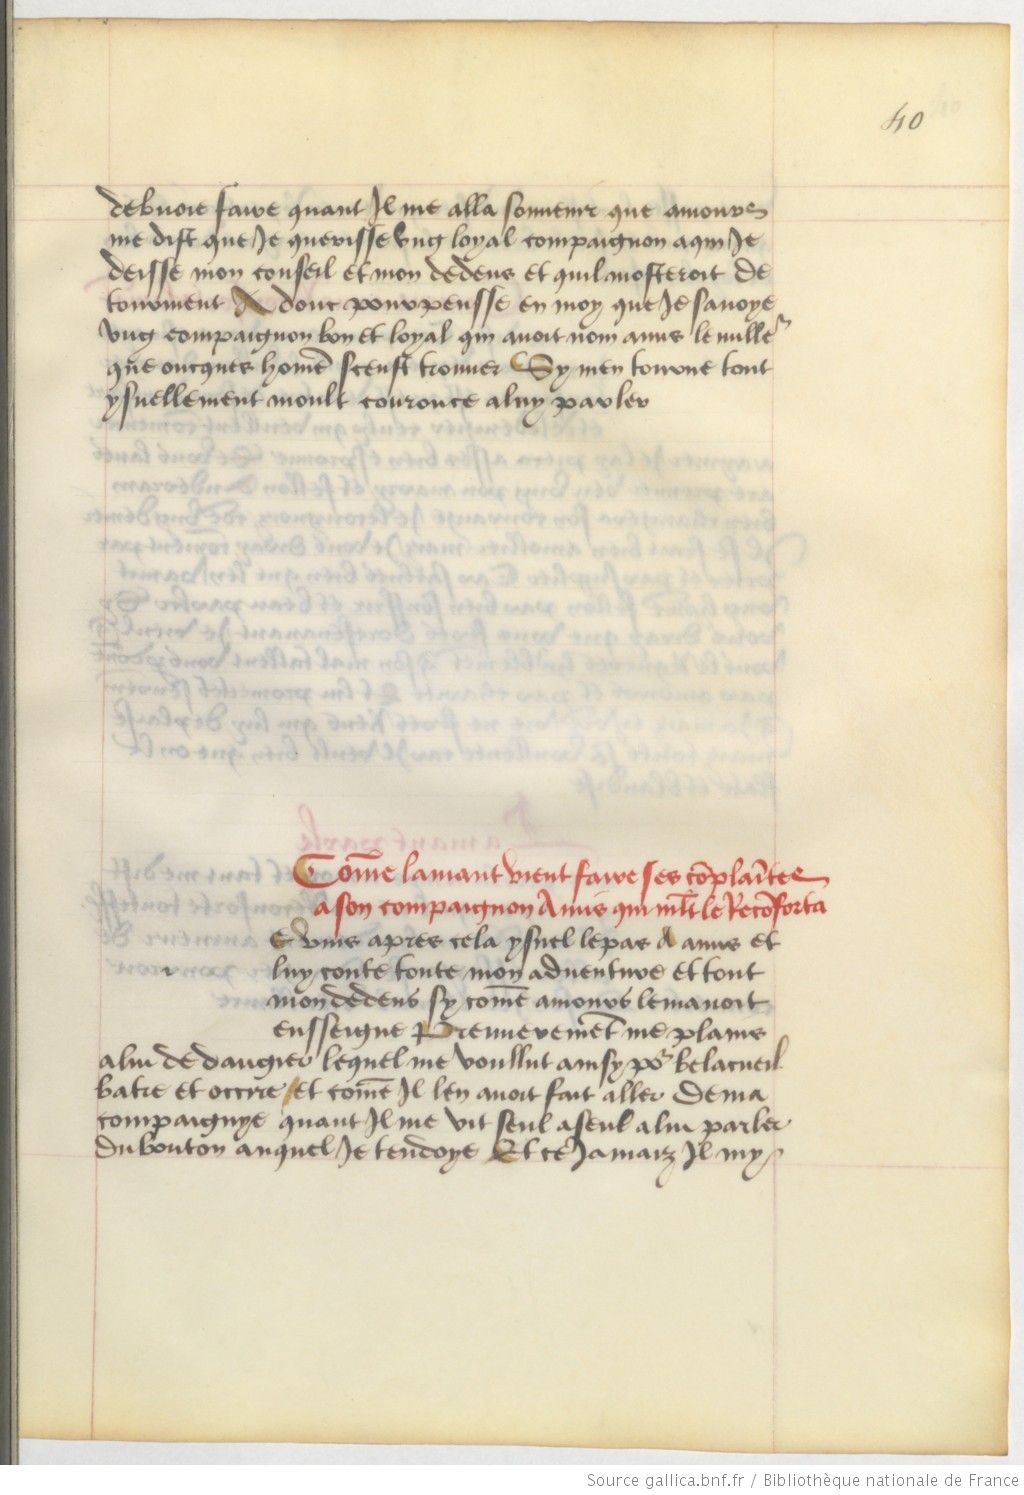 40
debvoie faire quant Il me alla souvenir que amours
me dist que Je querisse vng loyal compaignon aqui Je
deisse mon conseil et mon dedens et quil mosteroit de
tourment A donc pourpensse en moy que Je savoye
vng compaignon bon et loyal qui avoit nom amis le meille^r
que oncques hom̄e sceust trouver Sy men tourne tout
ysnellement moult courouce aluy parler
Com̄e lamant vient faire ses cōplaītes
a son compaignon Amis qui ml̄t le Recōforta
E vins apres cela ysnel lepas A amis et
luy conte toute mon adventure et tout
mon dedens sy com̄e amours lemavoit
ensseigne Premierem̄et me plains
alui de dangier lequel me voullut ainsy po^r belacueil
batre et occire et com̄e Il len avoit fait aller de ma
compaignye quant Il me vit seul aseul alui parler
du bouton auquel Je tendoye Et ce Jamaiz Il my
Source gallica.bnf.fr / Bibliothèque nationale de France